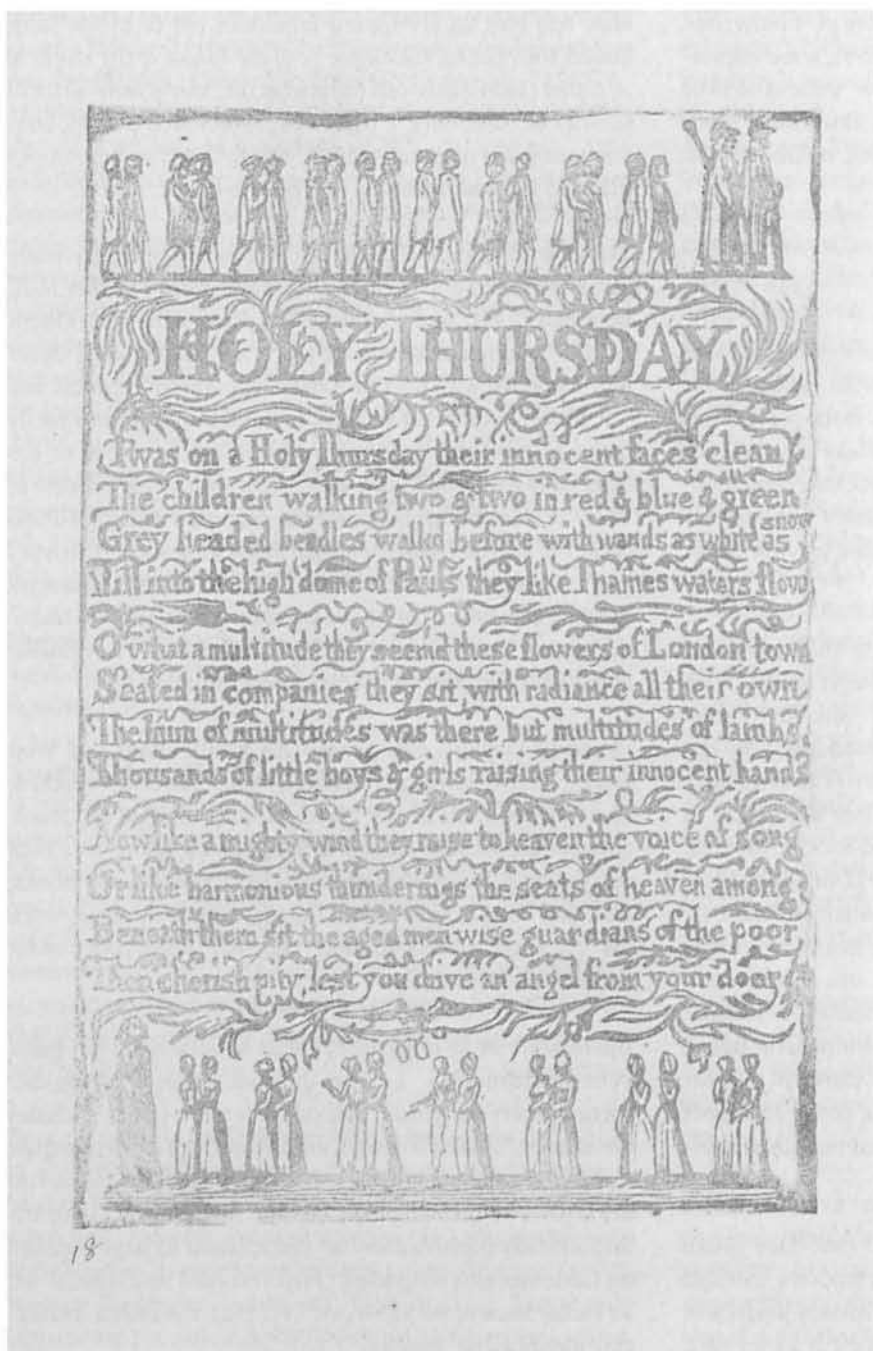 HOLY THURSDAY
Twas on a Holy Thursday their innocent faces clean
The children walking two & two in red & blue & green
Grey headed beadles walkd before with wands as white as snow
Till into the high dome of Pauls they like Thames waters flow
O what a multitude they seemd these flowers of London town
Seated in companies they sit with radiance all their own
The hum of multitudes was there but multitudes of lambs
Thousands of little boys & girls raising their innocent hands
Now like a mighty wind they raise to heaven the voice of song
Or like harmonious thunderings the seats of heaven among
Beneath them sit the aged men wise guardians of the poor
Then cherish pity, lest you drive an angel from your door
18